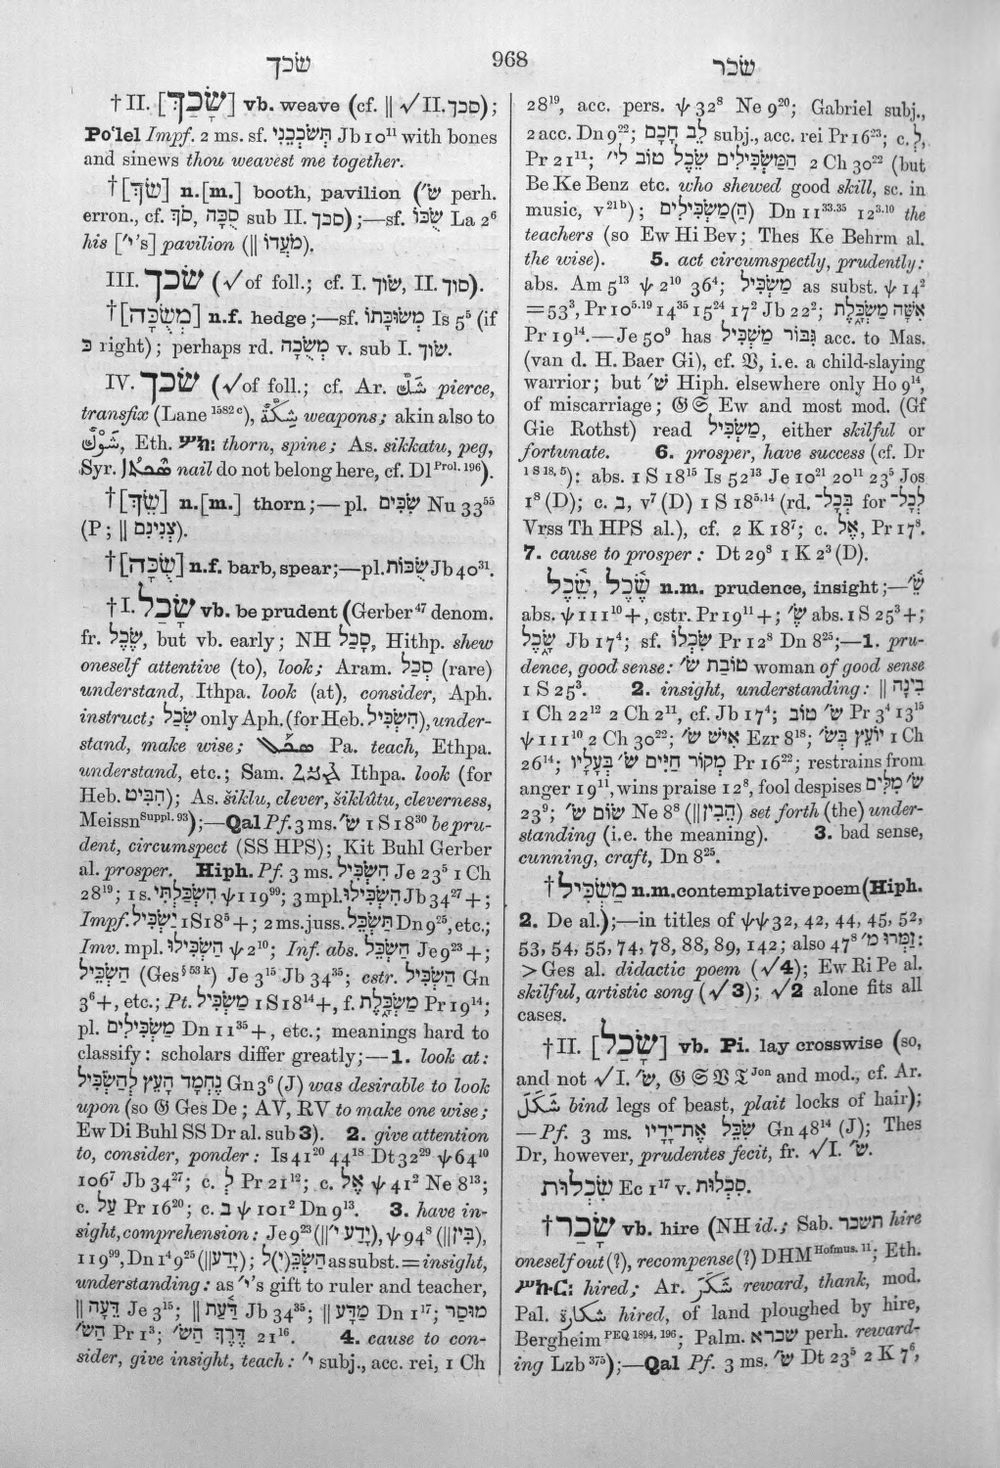 שׂכך
968
שׂכר
† II. [שָׂכַךְ] vb. weave (cf. ‖ √II. סכך);
Po'lel Impf. 2 ms. sf. תְּשֹׂכְכֵנִי Jb 10¹¹ with bones
and sinews thou weavest me together.
† [שֹׂךְ] n.[m.] booth, pavilion (שׂ׳ perh.
erron., cf. סֻכָּה, סֹךְ sub II. סכך);—sf. שֻׂכּוֹ La 2⁶
his [י״'s] pavilion (‖ מֹעֲדוֹ).
III. שׂכך (√of foll.; cf. I. שׂוך, II. סוך).
† [מְשֻׂכָּה] n.f. hedge;—sf. מְשׂוּכָּתוֹ Is 5⁵ (if
כּ right); perhaps rd. מְשֻׂכָה v. sub I. שׂוך.
IV. שׂכך (√of foll.; cf. Ar. شَكَّ pierce,
transfix (Lane ¹⁵⁸² ᶜ), شِكَّةٌ weapons; akin also to
شَوْكٌ, Eth. ሦክ: thorn, spine; As. sikkatu, peg,
Syr. nail do not belong here, cf. Dl Prol. 196).
† [שֵׂךְ] n.[m.] thorn;—pl. שִׂכִּים Nu 33⁵⁵
(P; ‖ צְנִינִם).
† [שֻׂכָּה] n.f. barb, spear;—pl. שֻׂכּוֹת Jb 40³¹.
† I. שָׂכַל vb. be prudent (Gerber⁴⁷ denom.
fr. שֶׂכֶל, but vb. early; NH סָכַל, Hithp. shew
oneself attentive (to), look; Aram. סְכַל (rare)
understand, Ithpa. look (at), consider, Aph.
instruct; שְׂכַל only Aph. (for Heb. הִשְׂכִּיל), under-
stand, make wise; Pa. teach, Ethpa.
understand, etc.; Sam. Ithpa. look (for
Heb. הִבִּיט); As. šiklu, clever, šiklûtu, cleverness,
Meissn Suppl. 93);—Qal Pf. 3 ms. שׂ׳ 1 S 18³⁰ be pru-
dent, circumspect (SS HPS); Kit Buhl Gerber
al. prosper. Hiph. Pf. 3 ms. הִשְׂכִּיל Je 23⁵ 1 Ch
28¹⁹; 1 s. הִשְׂכַּלְתִּי ψ 119⁹⁹; 3 mpl. הִשְׂכִּילוּ Jb 34²⁷+;
Impf. יַשְׂכִּיל 1 S 18⁵+; 2 ms. juss. תַּשְׂכֵּל Dn 9²⁵, etc.;
Imv. mpl. הַשְׂכִּילוּ ψ 2¹⁰; Inf. abs. הַשְׂכֵּל Je 9²³+;
הַשְׂכֵּיל (Ges § 53 k) Je 3¹⁵ Jb 34³⁵; cstr. הַשְׂכִּיל Gn
3⁶+, etc.; Pt. מַשְׂכִּיל 1 S 18¹⁴+, f. מַשְׂכֶּלֶת Pr 19¹⁴;
pl. מַשְׂכִּילִים Dn 11³⁵+, etc.; meanings hard to
classify: scholars differ greatly;—1. look at:
נֶחְמָד הָעֵץ לְהַשְׂכִּיל Gn 3⁶ (J) was desirable to look
upon (so 𝔊 Ges De; AV, RV to make one wise;
Ew Di Buhl SS Dr al. sub 3). 2. give attention
to, consider, ponder: Is 41²⁰ 44¹⁸ Dt 32²⁹ ψ 64¹⁰
106⁷ Jb 34²⁷; c. לְ Pr 21¹²; c. אֶל ψ 41² Ne 8¹³;
c. עַל Pr 16²⁰; c. ב ψ 101² Dn 9¹³. 3. have in-
sight, comprehension: Je 9²³ (‖ יָדַע י״), ψ 94⁸ (‖ בִּין),
119⁹⁹, Dn 1⁴ 9²⁵ (‖ יָדַע); הַשְׂכֵּ(י)ל as subst. = insight,
understanding: as י״'s gift to ruler and teacher,
‖ דֵּעָה Je 3¹⁵; ‖ דַּעַת Jb 34³⁵; ‖ מַדָּע Dn 1¹⁷; מוּסַר
הַשׂ׳ Pr 1³; דֶּרֶךְ הַשׂ׳ 21¹⁶. 4. cause to con-
sider, give insight, teach: י״ subj., acc. rei, 1 Ch
28¹⁹, acc. pers. ψ 32⁸ Ne 9²⁰; Gabriel subj.,
2 acc. Dn 9²²; לֵב חָכָם subj., acc. rei Pr 16²³; c. לְ,
Pr 21¹¹; הַמַּשְׂכִּילִים שֵׂכֶל טוֹב לי״ 2 Ch 30²² (but
Be Ke Benz etc. who shewed good skill, sc. in
music, v²¹ᵇ); (הַ)מַּשְׂכִּילִים Dn 11³³·³⁵ 12³·¹⁰ the
teachers (so Ew Hi Bev; Thes Ke Behrm al.
the wise). 5. act circumspectly, prudently:
abs. Am 5¹³ ψ 2¹⁰ 36⁴; מַשְׂכִּיל as subst. ψ 14²
= 53³, Pr 10⁵·¹⁹ 14³⁵ 15²⁴ 17² Jb 22²; אִשָּׁה מַשְׂכֶּלֶת
Pr 19¹⁴.—Je 50⁹ has גִּבּוֹר מַשְׁכִּיל acc. to Mas.
(van d. H. Baer Gi), cf. 𝔙, i.e. a child-slaying
warrior; but שׁ׳ Hiph. elsewhere only Ho 9¹⁴,
of miscarriage; 𝔊 𝔖 Ew and most mod. (Gf
Gie Rothst) read מַשְׂכִּיל, either skilful or
fortunate. 6. prosper, have success (cf. Dr
1 S 18, 5): abs. 1 S 18¹⁵ Is 52¹³ Je 10²¹ 20¹¹ 23⁵ Jos
1⁸ (D); c. ב, v⁷ (D) 1 S 18⁵·¹⁴ (rd. בְּכָל־ for לְכָל־
Vrss Th HPS al.), cf. 2 K 18⁷; c. אֶל, Pr 17⁸.
7. cause to prosper: Dt 29⁸ 1 K 2³ (D).
שֶׂכֶל, שֵׂכֶל n.m. prudence, insight;—שֵׂ׳
abs. ψ 111¹⁰+, cstr. Pr 19¹¹+; שֶׂ׳ abs. 1 S 25³+;
שָׂכֶל Jb 17⁴; sf. שִׂכְלוֹ Pr 12⁸ Dn 8²⁵;—1. pru-
dence, good sense: טוֹבַת שׂ׳ woman of good sense
1 S 25³. 2. insight, understanding: ‖ בִּינָה
1 Ch 22¹² 2 Ch 2¹¹, cf. Jb 17⁴; שׂ׳ טוֹב Pr 3⁴ 13¹⁵
ψ 111¹⁰ 2 Ch 30²²; אִישׁ שׂ׳ Ezr 8¹⁸; יוֹעֵץ בְּשׂ׳ 1 Ch
26¹⁴; מְקוֹר חַיִּים שׂ׳ בְּעָלָיו Pr 16²²; restrains from
anger 19¹¹, wins praise 12⁸, fool despises שׂ׳ מִלִּים
23⁹; שׂוֹם שׂ׳ Ne 8⁸ (‖ הֵבִין) set forth (the) under-
standing (i.e. the meaning). 3. bad sense,
cunning, craft, Dn 8²⁵.
† מַשְׂכִּיל n.m. contemplative poem (Hiph.
2. De al.);—in titles of ψψ 32, 42, 44, 45, 52,
53, 54, 55, 74, 78, 88, 89, 142; also 47⁸ זַמְּרוּ מ׳:
> Ges al. didactic poem (√4); Ew Ri Pe al.
skilful, artistic song (√3); √2 alone fits all
cases.
† II. [שָׂכַל] vb. Pi. lay crosswise (so,
and not √I. שׂ׳, 𝔊 𝔖 𝔙 𝔗 Jon and mod., cf. Ar.
شَكَلَ bind legs of beast, plait locks of hair);
—Pf. 3 ms. שִׂכֵּל אֶת־יָדָיו Gn 48¹⁴ (J); Thes
Dr, however, prudentes fecit, fr. √I. שׂ׳.
שִׂכְלוּת Ec 1¹⁷ v. סִכְלוּת.
† שָׂכַר vb. hire (NH id.; Sab. תשכר hire
oneself out (?), recompense (?) DHM Hofmus. 11; Eth.
ሦከረ: hired; Ar. شَكَرَ reward, thank, mod.
Pal. شكارة hired, of land ploughed by hire,
Bergheim PEQ 1894, 196; Palm. שכרא perh. reward-
ing Lzb 375);—Qal Pf. 3 ms. שׂ׳ Dt 23⁵ 2 K 7⁶,